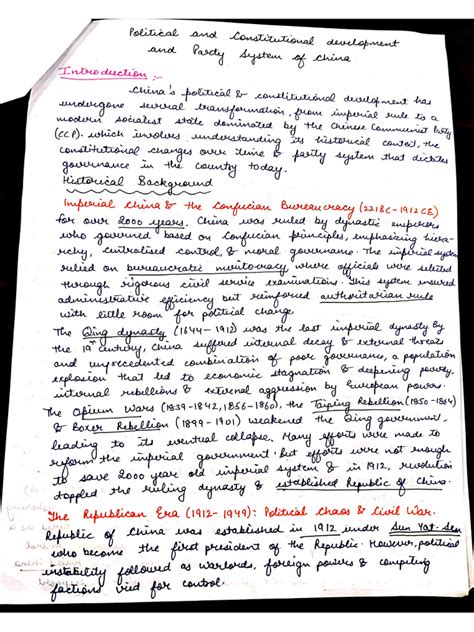 Political and Constitutional development
and Party System of China
Introduction :-
China's political & constitutional development has
undergone several transformation, from imperial rule to a
modern socialist state dominated by the Chinese Communist Party
(CCP). which involves understanding its historical context, the
constitutional changes over time & party system that dictates
governance in the country today.
Historical Background
Imperial China & the Confucian Bureaucracy (221BC-1912CE)
for over 2000 years, China was ruled by dynastic emperors
who governed based on Confucian principles, emphasizing hiera-
rchy, centralised control, & moral governance. The imperial system
relied on bureaucratic meritocracy, where officials were selected
through rigorous civil service examinations. This system ensured
administrative efficiency but reinforced authoritarian rule
with little room for political change
The Qing dynasty (1644-1912) was the last imperial dynasty by
the 19th century, China suffered internal decay & external threats
and unprecedented combination of poor governance, a population
explosion that led to economic stagnation & deepening poverty,
internal rebellions & external aggression by European powers.
The Opium Wars (1839-1842, 1856-1860), the Taiping Rebellion (1850-1864)
& Boxer Rebellion (1899-1901) weakened the Qing government,
leading to its eventual collapse. Many efforts were made to
reform the imperial government but efforts were not enough
to save 2000 year old imperial system & in 1912, revolution
toppled the ruling dynasty & established Republic of China.
The Republican Era (1912-1949): Political Chaos & Civil War.
Republic of China was established in 1912 under Sun Yat-Sen
who become the first president of the Republic. However, political
instability followed as warlords, foreign powers & competing
factions vied for control.